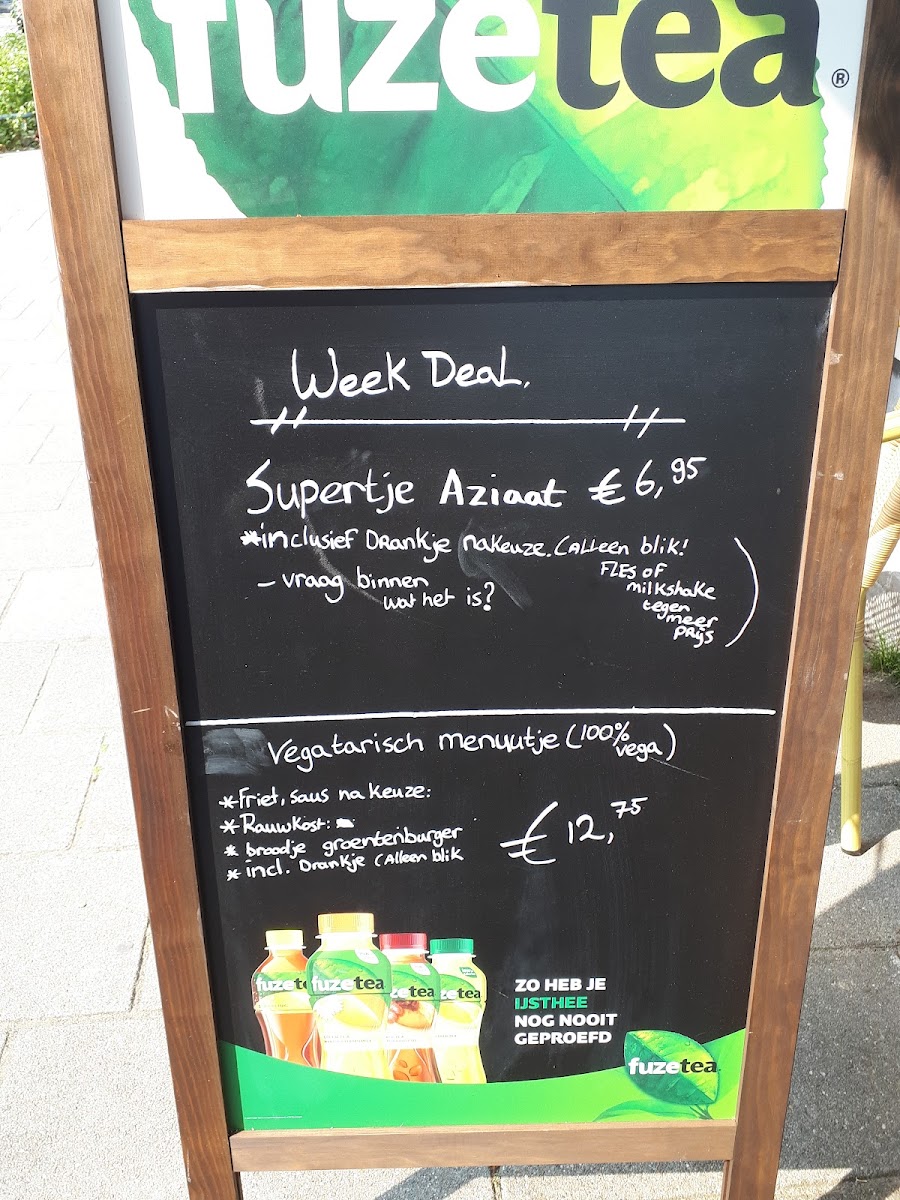 fuzetea®
Week Deal.
Supertje Aziaat € 6,95
*inclusief Drankje nakeuze. (Alleen blik!
FLES of
milkshake
tegen
meer
prijs)
- vraag binnen
wat het is?
Vegatarisch menuutje (100%
vega)
*Friet, saus na keuze:
*Rauwkost:
* broodje groentenburger
* incl. Drankje (Alleen blik
€ 12,75
fuzete
fuzetea
zetea
zetea
ZO HEB JE
IJSTHEE
NOG NOOIT
GEPROEFD
fuzetea